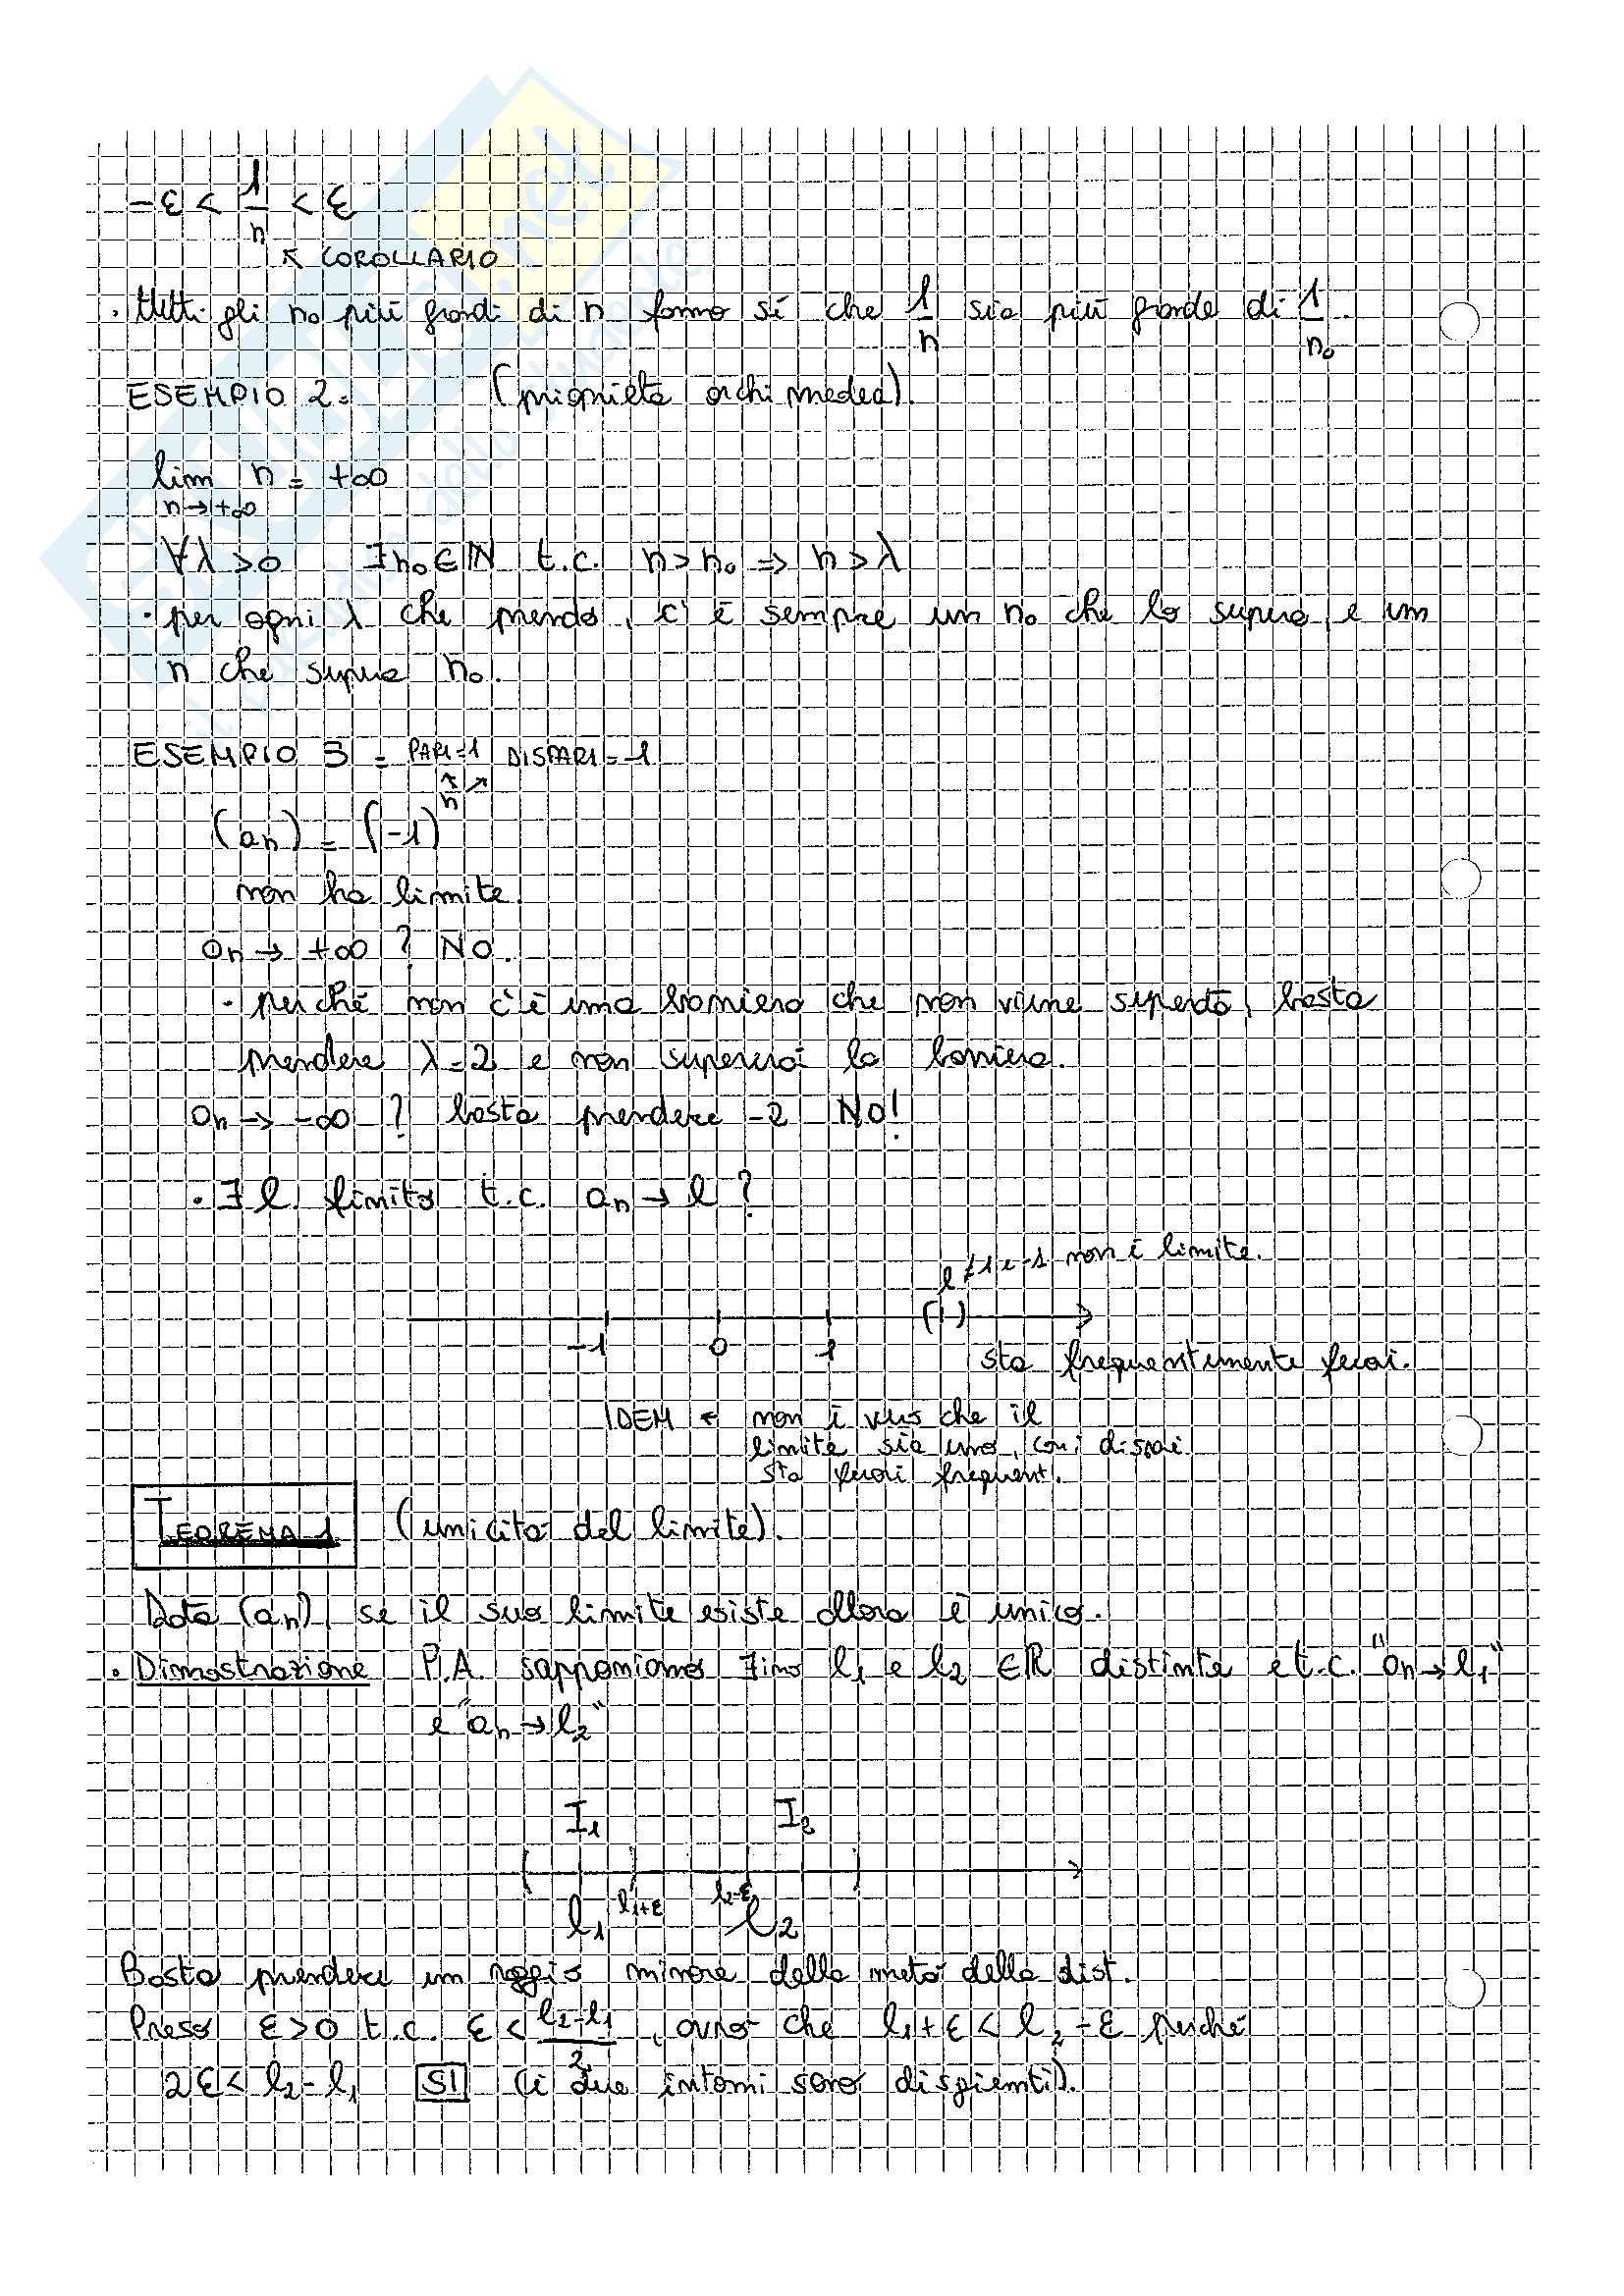 -ε < 1/n < ε
↖ COROLLARIO
· tutti gli n₀ più grandi di n fanno sì che 1/n sia più grande di 1/n₀.
ESEMPIO 2 = (proprietà archimedea).
lim n = +∞
n→+∞
∀λ>0 ∃n₀∈ℕ t.c. n>n₀ => n>λ
· per ogni λ che prendo, c'è sempre un n₀ che lo supera, e un
n che supera n₀.
ESEMPIO 3 = PARI=1 DISPARI=-1
(aₙ) = (-1)ⁿ
non ha limite.
aₙ → +∞ ? NO.
· perché non c'è una barriera che non viene superata, basta
prendere λ=2 e non supererà la barriera.
aₙ → -∞ ? basta prendere -2 NO!
· ∃ l finito t.c. aₙ → l ?
l ≠1 e -1 non è limite.
-1 0 1
sta frequentemente fuori.
IDEM ← non è vero che il
limite sia uno, con i dispari
sta fuori frequent.
TEOREMA 1 (unicità del limite).
Data (aₙ), se il suo limite esiste allora è unico.
· Dimostrazione P.A. supponiamo ∃ino l₁ e l₂ ∈ℝ distinte e t.c. "aₙ→l₁"
e "aₙ→l₂"
I₁ I₂
l₁ l₁+ε l₂-ε l₂
Basta prendere un raggio minore della metà della dist.
Preso ε>0 t.c. ε < (l₂-l₁)/2, avrò che l₁+ε < l₂-ε perché
2ε < l₂-l₁ SI (i due intorni sono disgiunti).